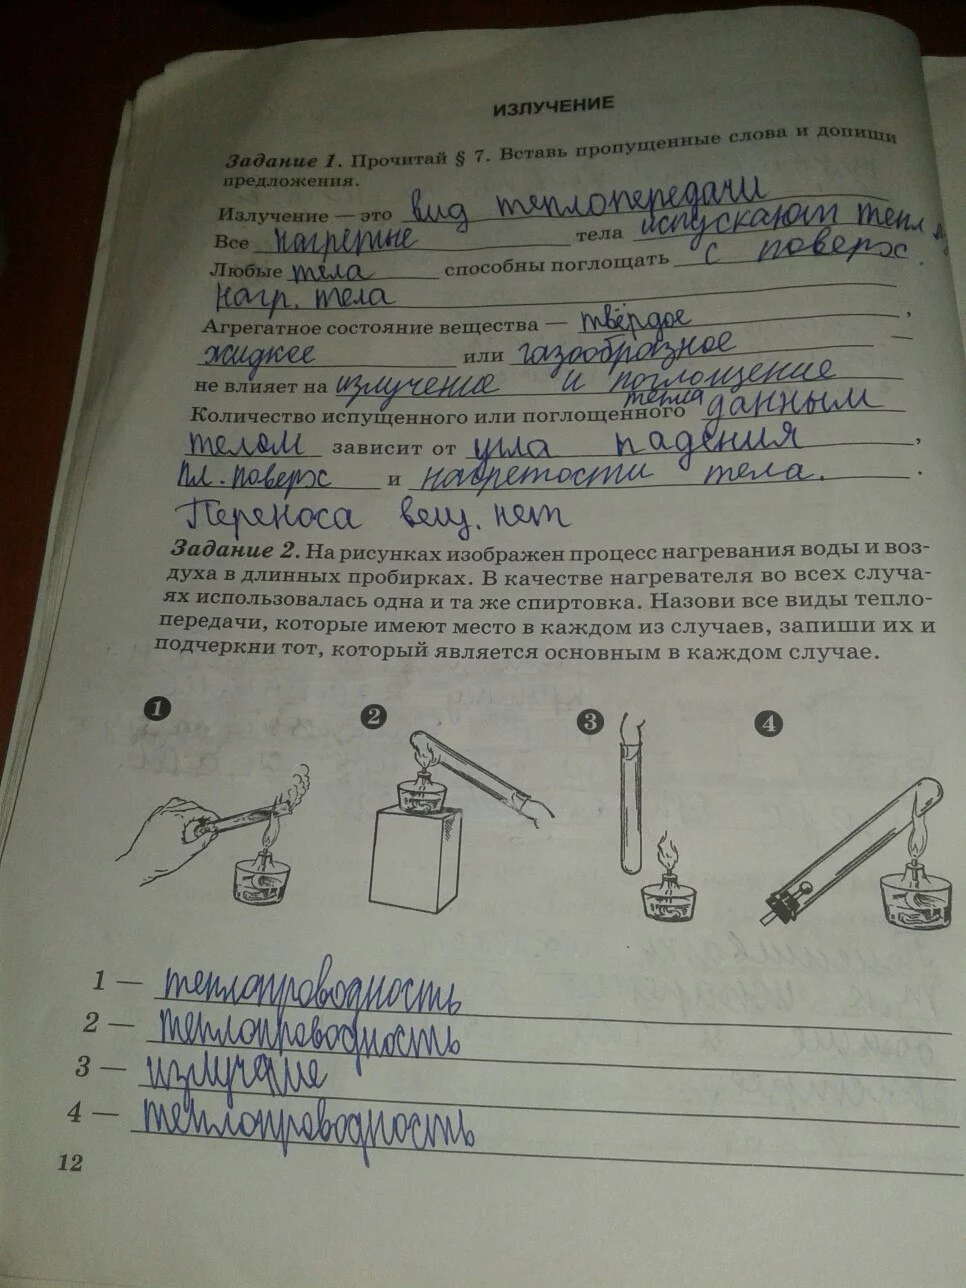 ИЗЛУЧЕНИЕ
Задание 1. Прочитай § 7. Вставь пропущенные слова и допиши
предложения.
Излучение — это вид теплопередачи
Все нагретые тела испускают тепл
Любые тела способны поглощать с поверх
нагр. тела
Агрегатное состояние вещества — твёрдое,
жидкее или газообразное —
не влияет на излучение и поглощение
Количество испущенного или поглощенного тепла данным
телом зависит от угла падения,
пл. поверх и нагретости тела.
Переноса вещ. нет
Задание 2. На рисунках изображен процесс нагревания воды и воз-
духа в длинных пробирках. В качестве нагревателя во всех случа-
ях использовалась одна и та же спиртовка. Назови все виды тепло-
передачи, которые имеют место в каждом из случаев, запиши их и
подчеркни тот, который является основным в каждом случае.
1 2 3 4
1 — теплопроводность
2 — теплопроводность
3 — излучение
4 — теплопроводность
12